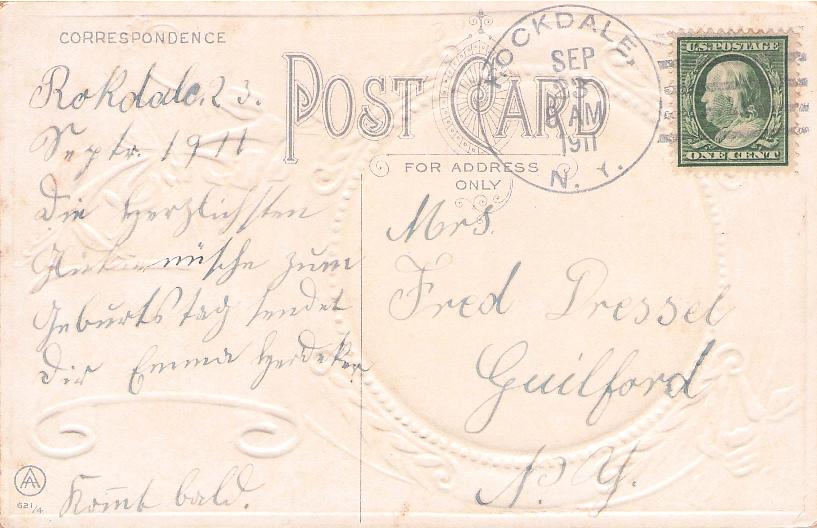 CORRESPONDENCE
POST CARD
FOR ADDRESS
ONLY
ROCKDALE,
SEP
23
8 AM
1911
N. Y.
U.S. POSTAGE
ONE CENT
Rokdale, 23.
Septr. 1911
Die herzlichsten
Glückwünsche zum
Geburtstag sendet
Dir Emma
Kommt bald.
Mrs.
Fred Dressel
Guilford
N. Y.
AA
621/4